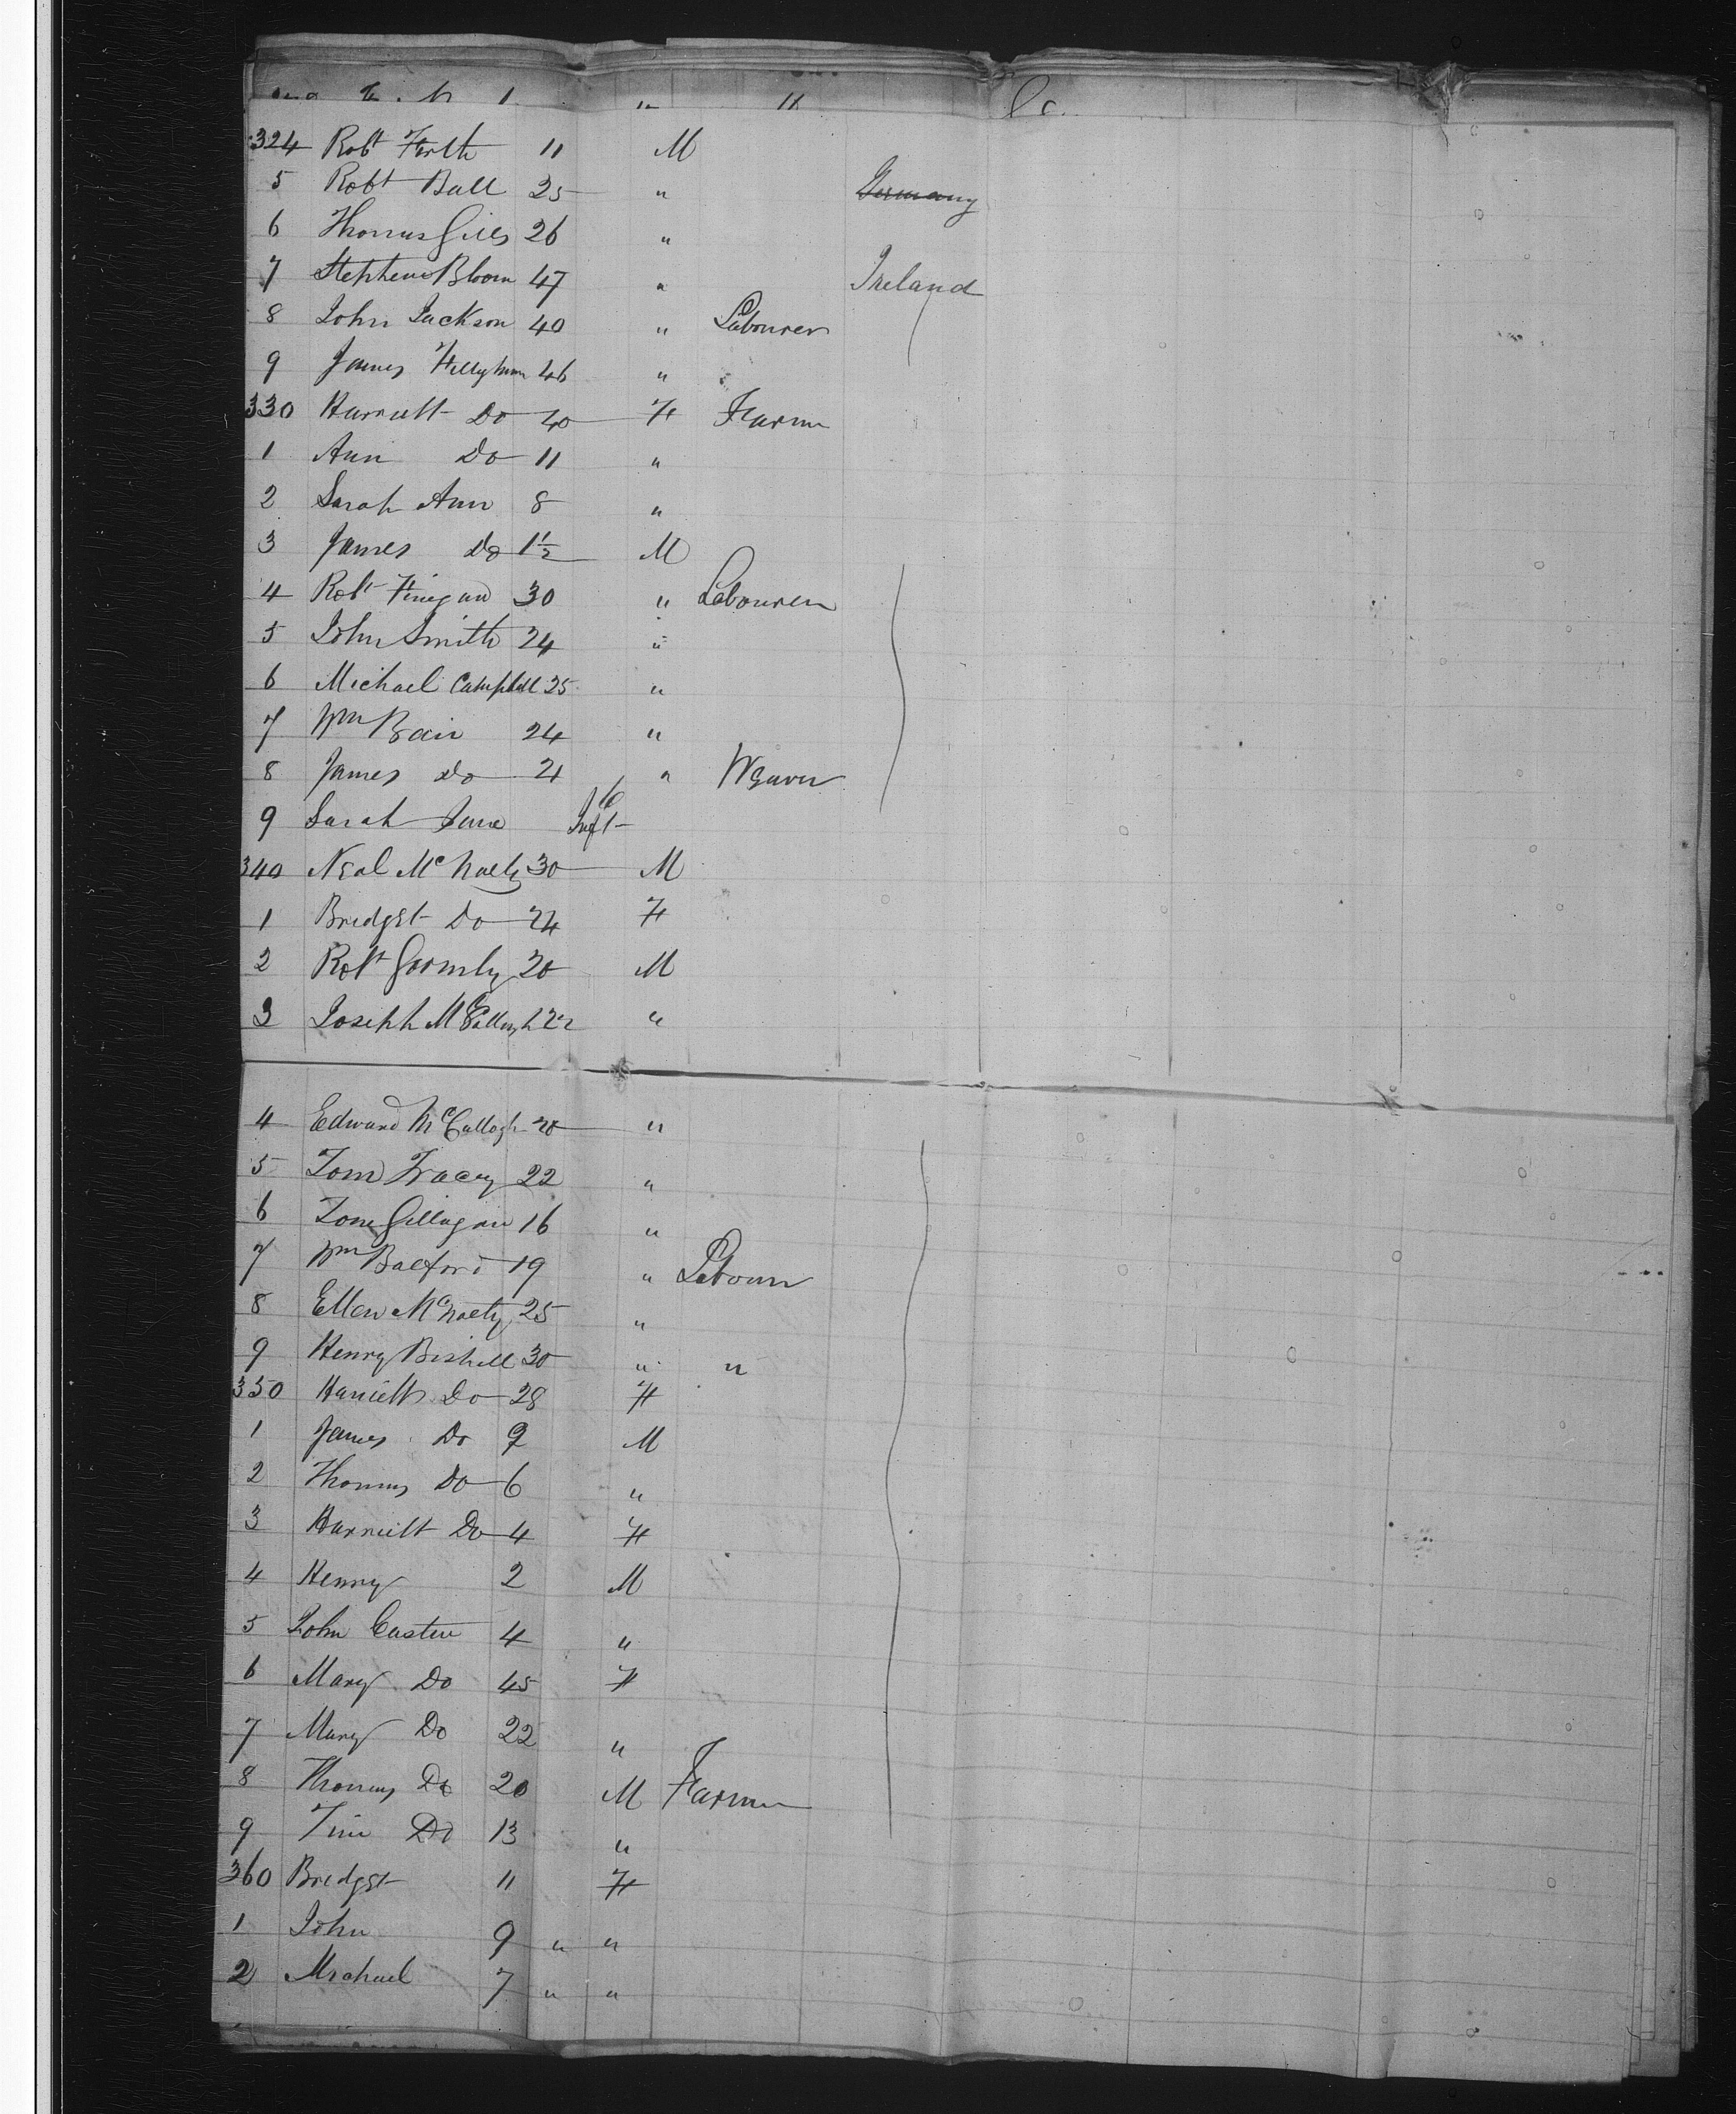 324 Robt Firth 11 M
5 Robt Ball 25 " Germany
6 Thomas Giles 26 "
7 Stephen Bloom 47 " Ireland
8 John Jackson 40 " Labourer
9 James 46 "
330 Harriett Do 40 F Farm
1 Ann Do 11 "
2 Sarah Ann 8 "
3 James Do 1½ M
4 Robt Finegan 30 " Labourer
5 John Smith 24 "
6 Michael Campbell 25 "
7 Wm Bair 24 "
8 James Do 21 " Weaver
9 Sarah Jane Inft
340 Neal McNaely 30 M
1 Bridget Do 24 F
2 Robt Gormly 20 M
3 Joseph McCallogh 22 "
4 Edward McCallogh 20 "
5 Tom Tracey 22 "
6 Tom Gillagan 16 "
7 Wm Balford 19 " Labour
8 Ellen McNaety 25 "
9 Henry Bishell 30 " "
350 Harriett Do 28 F
1 James Do 9 M
2 Thomas Do 6 "
3 Harriett Do 4 F
4 Henry 2 M
5 John Casten 4 "
6 Mary Do 45 F
7 Mary Do 22 "
8 Thomas Do 20 M Farmer
9 Tim Do 13 "
360 Bridget 11 F
1 John 9 " "
2 Michael 7 " "